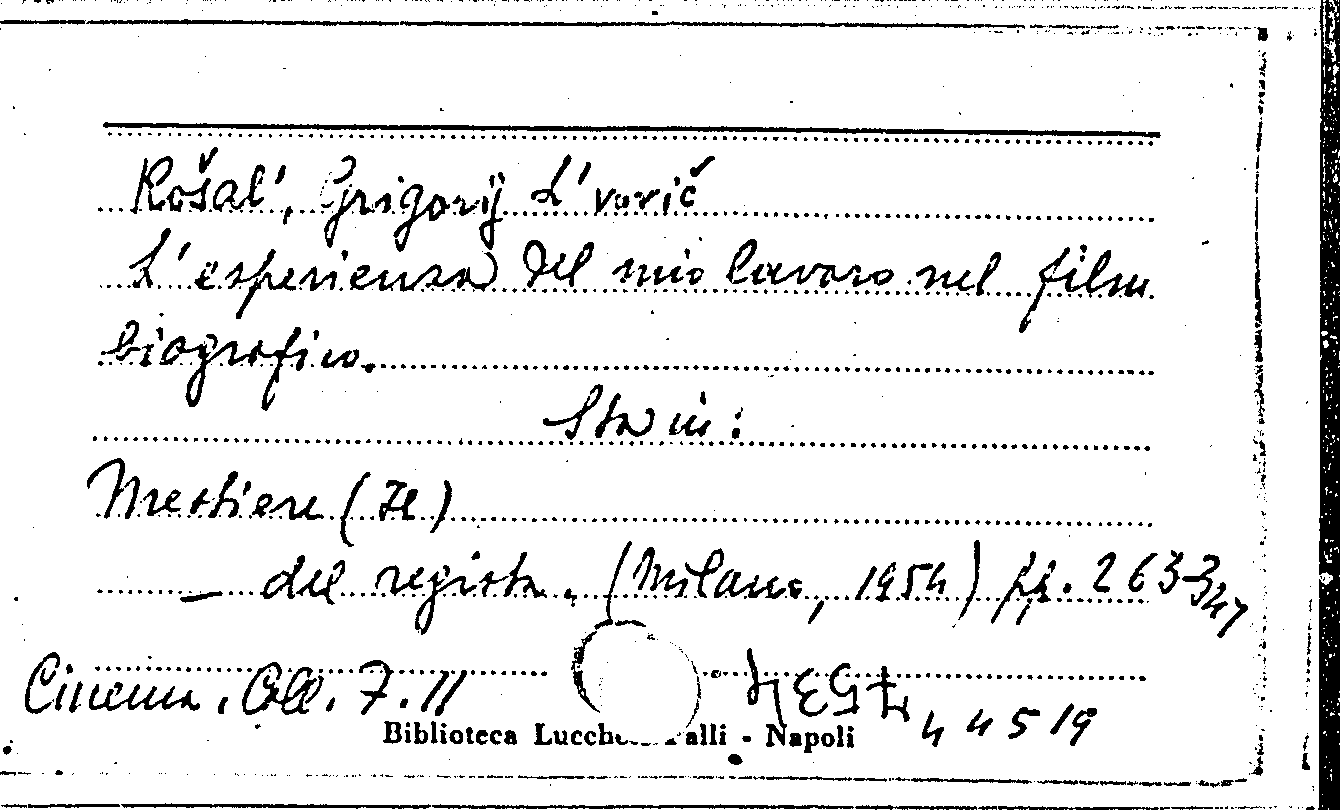 Rošal', Grigorij L'vovič
L'esperienza del mio lavoro nel film
biografico.
Sta in:
Mestiere (Il)
— del regista. (Milano, 1954) pp. 263-347
Cinema. Coll. 7.11
44519
Biblioteca Lucche alli - Napoli